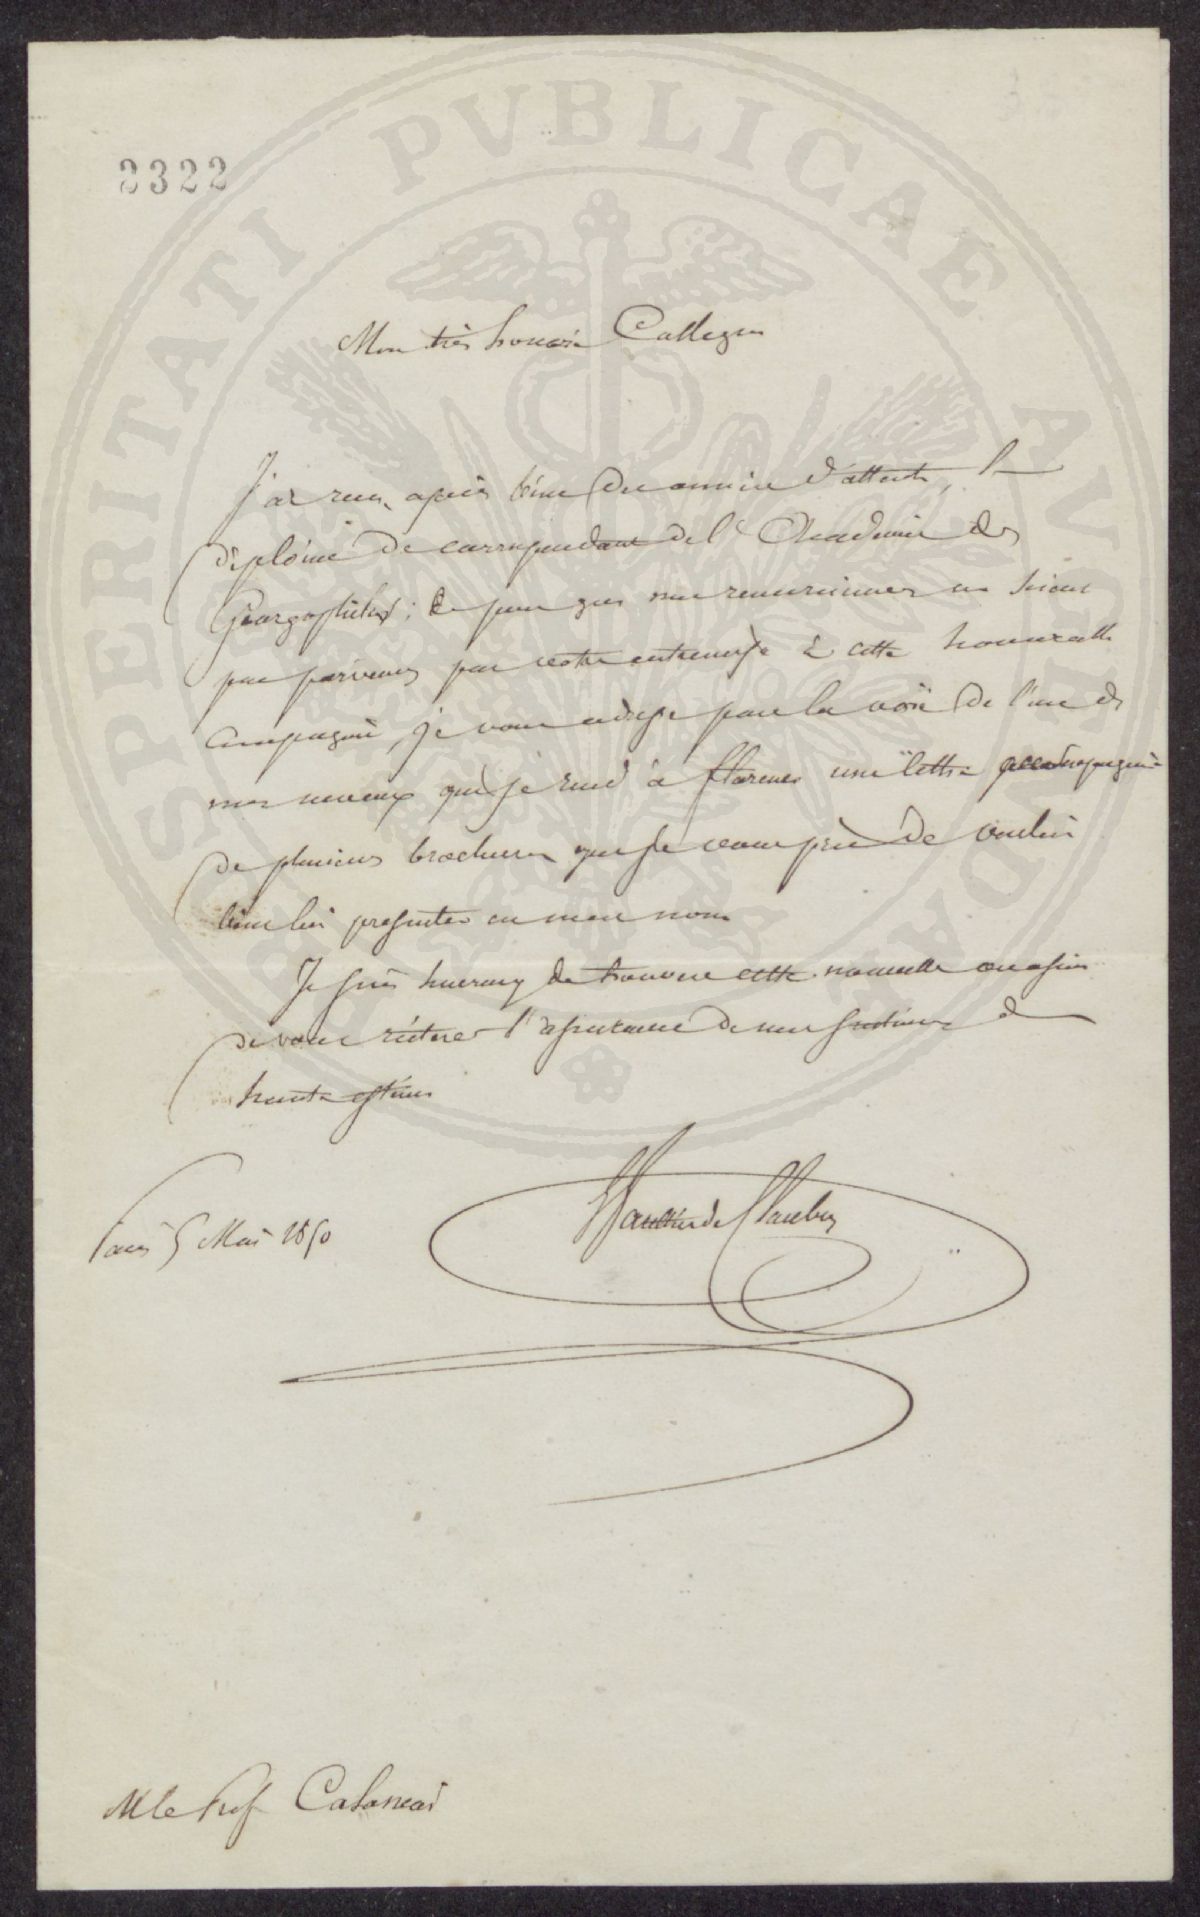 2322
PROSPERITATI PVBLICAE AVGENDAE
Mon très honoré Collègue
J'ai reçu, après bien des années d'attente, le
diplôme de correspondant de l'Académie des
Géorgophiles; pour que mes remerciements
parviennent par votre entremise à cette honorable
compagnie, je vous adresse par la voie de l'un de
mes neveux qui se rend à florence une lettre accompagnée
de plusieurs brochures que je vous prie de vouloir
bien lui présenter en mon nom
Je suis heureux de trouver cette nouvelle occasion
de vous réitérer l'assurance de mes sentimens de
haute estime
Paris 5 Mai 1850
Gaultier de Claubry
M le Prof Calamai